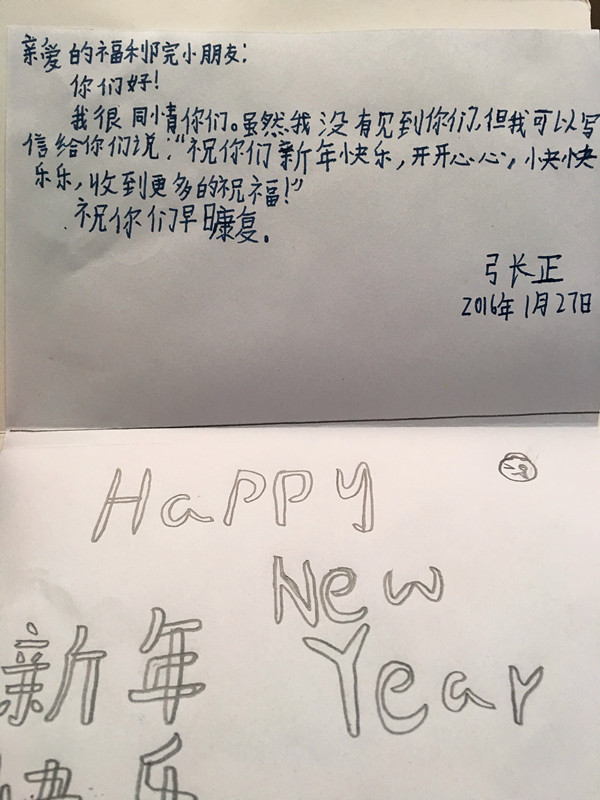 亲爱的福利院小朋友：
你们好！
我很同情你们。虽然我没有见到你们，但我可以写
信给你们说：“祝你们新年快乐，开开心心，快快
乐乐，收到更多的祝福！”
祝你们早日康复。
弓长正
2016年1月27日
Happy
New
Year
新年
快乐